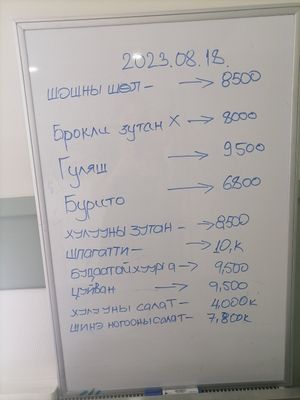 2023.08.18.
шошны шөл - → 8500
Брокли зутан X → 8000
Гуляш → 9500
Бурито → 6800
хулууны зутан - → 8,500
шпагатти - → 10,к
будаатай хуурга → 9,500
цуйван → 9,500
хулууны салат - 4,000к
шинэ ногооны салат - 7,800к